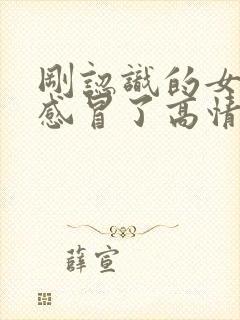 剛認識的女
感冒了高情
薛宣